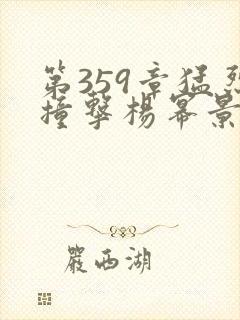 第359章猛烈
撞擊楊冪景
嚴西湖